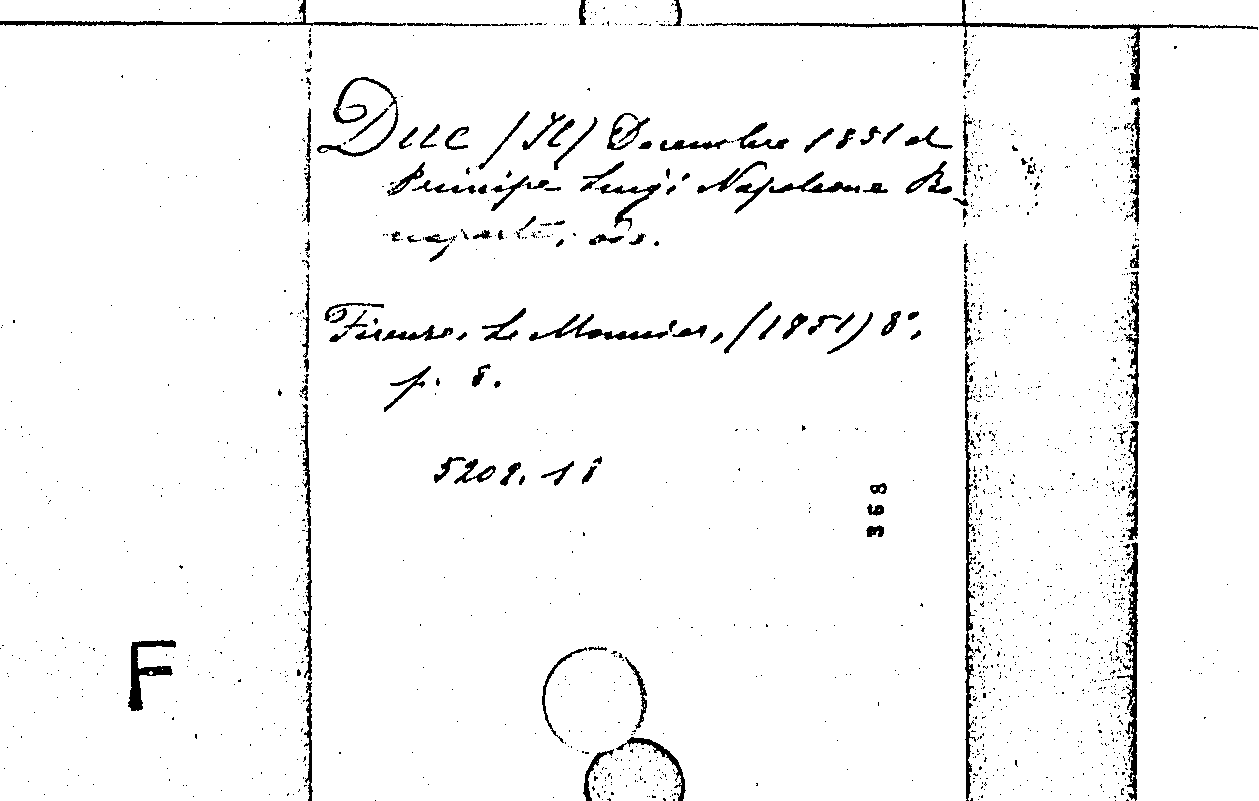 Due (Il) Decembre 1851 al
Principe Luigi Napoleone Bo-
naparte, ode.
Firenze, Le Monnier, (1851) 8°,
p. 8.
5202. 18
368
F